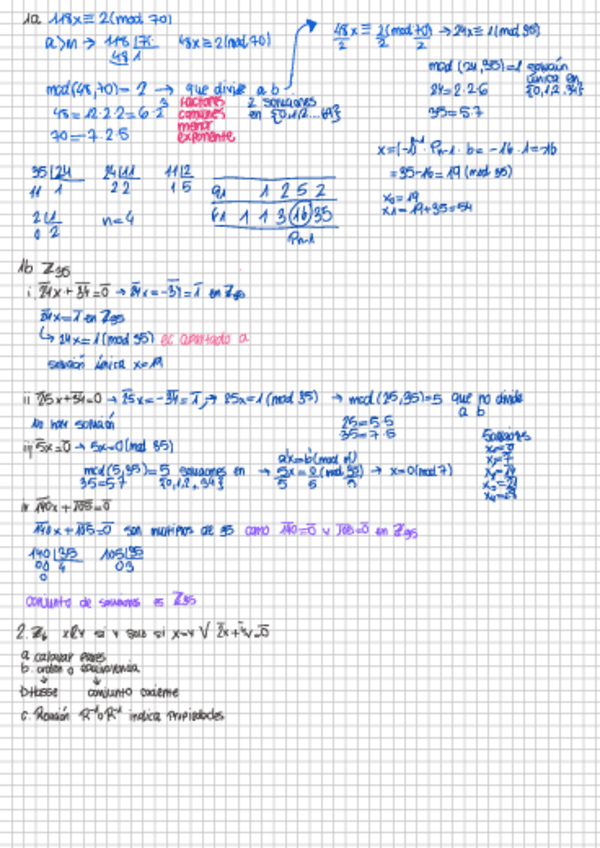 1a 118x ≡ 2 (mod 70)
a > n → 118 | 70 48x ≡ 2 (mod 70)
48 1
48x/2 ≡ 2/2 (mod 70/2) → 24x ≡ 1 (mod 35)
mcd (24,35)=1 solución única en {0,1,2..34}
24=2·2·6
35=5·7
mcd(48,70)=2 → que divide a b
48=12·2·2=6·2³
70=7·2·5
factores comunes menor exponente
2 soluciones en {0,1,2...69}
x=(-1)ⁿ⁻¹·Pn-1·b=-16·1=-16
=35-16=19 (mod 35)
x0=19
x1=19+35=54
35|24 24|11 11|2
11 1 2 2 1 5
2|1 n=4
0 2
q1 1 2 5 2
P1 1 1 3 16 35
Pn-1
1b Z35
i 24x+34=0 → 24x=-34=1 en Z35
24x=1 en Z35
↳ 24x=1 (mod 35) ec apartado a
solución única x=19
ii 25x+34=0 → 25x=-34=1 → 25x=1 (mod 35) → mcd(25,35)=5 que no divide a b
No hay solución
25=5·5
35=7·5
iii 5x=0 → 5x=0 (mod 35)
mcd(5,35)=5 soluciones en {0,1,2..34}
35=5·7
a'x=b'(mod n')
→ 5x/5=0/5 (mod 35/5) → x=0 (mod 7)
Soluciones
x0=0
x1=7
x2=14
x3=21
x4=28
iv 140x+105=0
140x+105=0 son múltiplos de 35 como 140=0 y 105=0 en Z35
140|35 105|35
00 4 0 3
0
conjunto de soluciones es Z35
2. Z6 xRy si y solo si x=y ∨ 2x+ y=0
a calcular pares
b. orden o equivalencia
↓ ↓
Hasse conjunto cociente
c. Relación R⁻¹oR⁻¹ indica propiedades